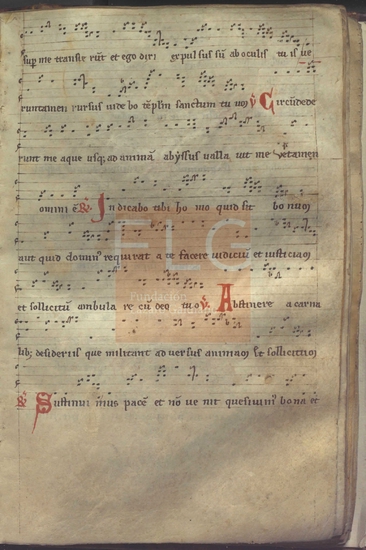 sup me transier̄t et ego dixi expulsus sū ab oculis tuis ve
runtamen rursus videbo tēplū sanctum tuū ℣ Circūdede
runt me aque usq; ad animā abyssus valla vit me ℣ Vetamen
omini ē ℟ Indicabo tibi homo quid sit bonum
aut quid dominꝰ requirat a te facere iudiciū et iusticiam
et sollicitū ambulare cū deo tuo ℣ Abstinere a carna
lib; desideriis que militant adversus animam Et sollicitū
℟ Sustinuimus pacē et nō venit quesivimꝰ bona et
FLG